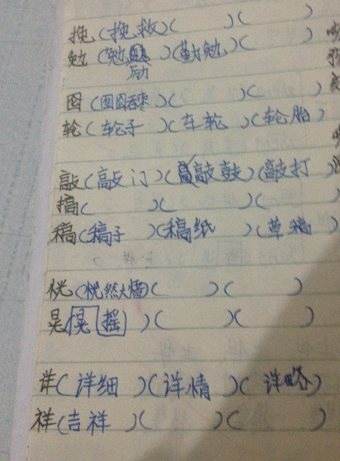 挽(挽救)( )( )
勉(勉励)(勤勉)( )
囵(囫囵吞枣)( )( )
轮(轮子)(车轮)(轮胎)
敲(敲门)(敲鼓)(敲打)
搞( )( )( )
稿(稿子)(稿纸)(草稿)
恍(恍然大悟)( )( )
晃(晃摇)( )( )
详(详细)(详情)(详略)
祥(吉祥)( )( )